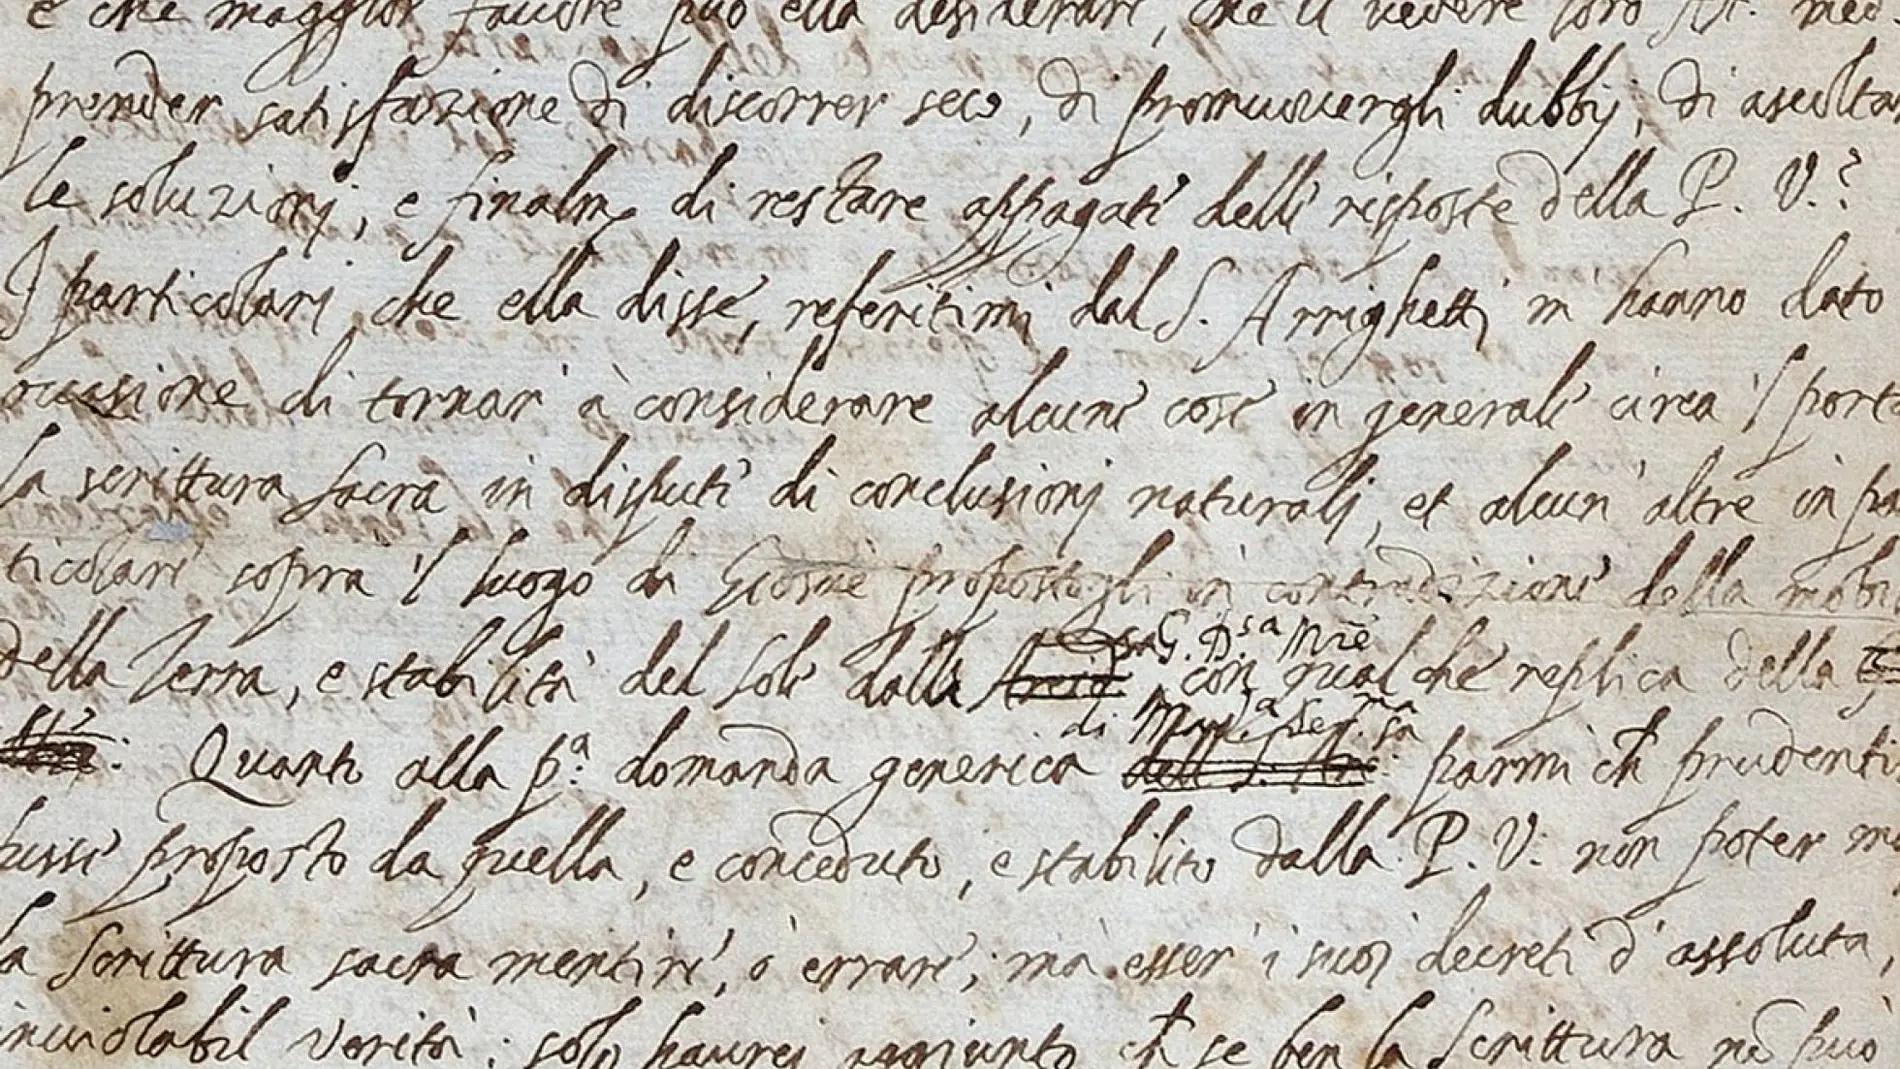 e che maggior favore può ella desiderare, che il vedere loro Alt. med
prender satisfazione di discorrer seco, di promuovergli dubbij, di ascoltar
le soluzionj, e finalm.e di restare appagate delle risposte della P. V.?
I particolarj che ella disse, referitimj dal S. Arrighettj m'hanno dato
occasione di tornar à considerare alcune cose in generale circa 'l port
la scrittura sacra in dispute di conclusionj naturalj, et alcun' altre in par
ticolare sopra 'l luogo di Giosuè propostogli in contradizione della mobil
sa G. D.sa Mre
della Terra, e stabilità del Sole dalla con qualche replica della
di Mad.a Ser.ma sa
Quanto alla p.a domanda generica parmi ch prudentis
fusse proposto da quella, e conceduto, e stabilito dalla P. V. non poter ma
la Scrittura sacra mentire, ò errare; mà esser i suoj decreti d'assoluta,
inviolabil verità: solo haurej aggiunto ch se ben la Scrittura nō può